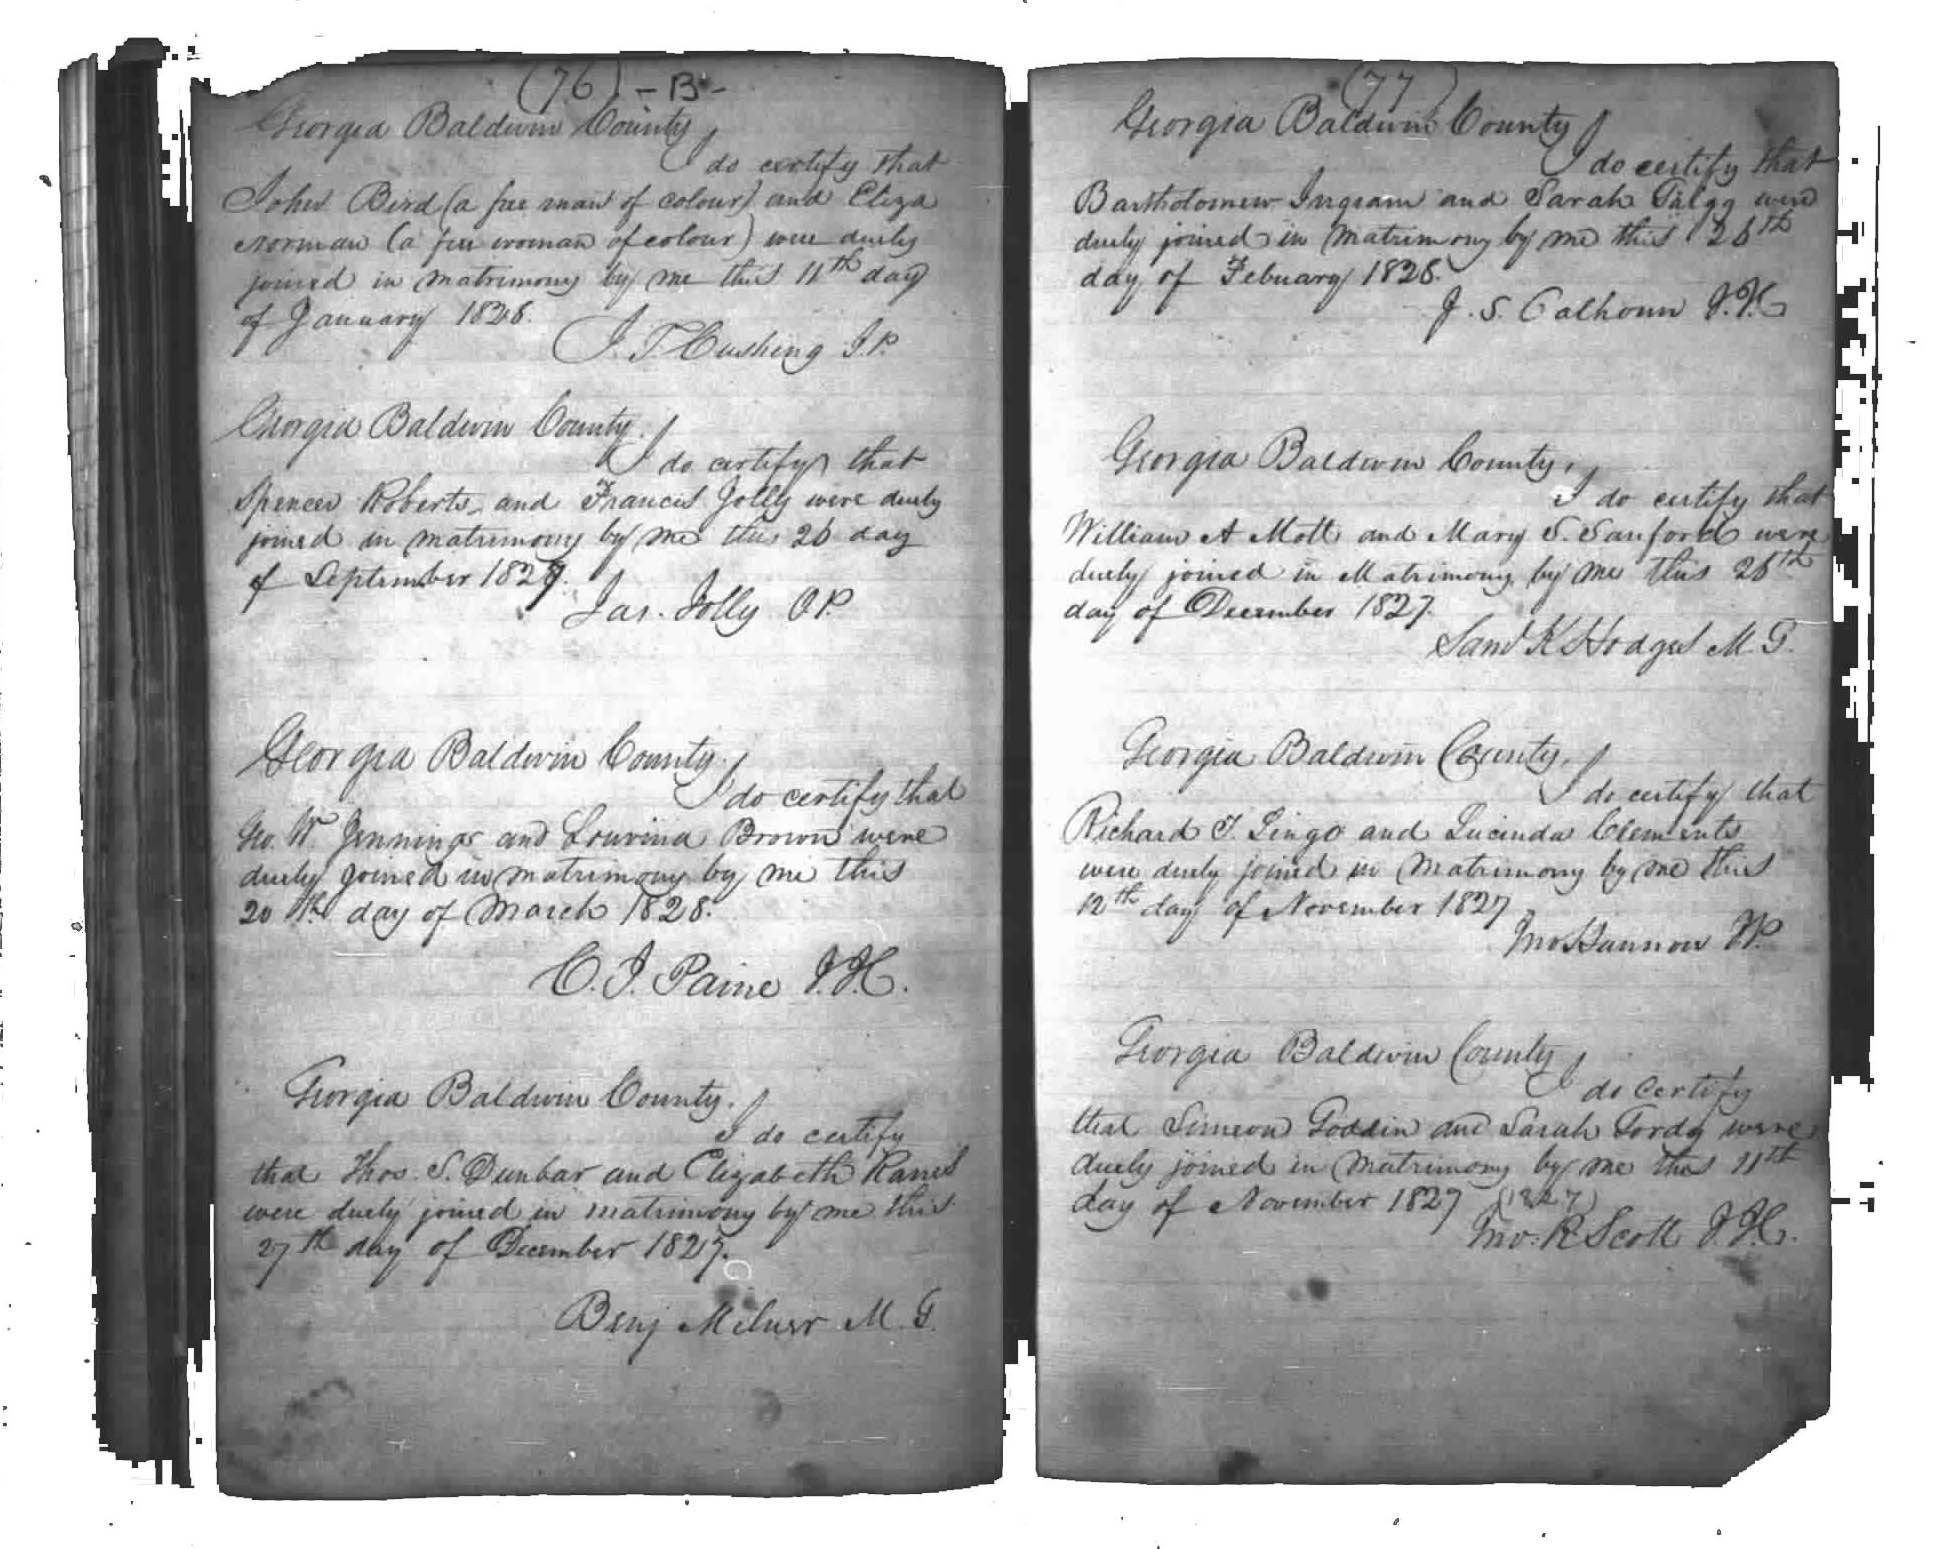 (76) - B -
Georgia Baldwin County
I do certify that
John Bird (a free man of colour) and Eliza
Norman (a free woman of colour) were duely
joined in matrimony by me this 11th day
of January 1828.
J. T. Cushing J.P.
Georgia Baldwin County.
I do certify that
Spencer Roberts and Francis Jolly were duely
joined in matrimony by me this 26 day
of September 1827.
Jas. Jolly J.P.
Georgia Baldwin County.
I do certify that
Geo. W. Jennings and Louvina Brown were
duely joined in matrimony by me this
20th day of March 1828.
C. J. Paine J.I.C.
Georgia Baldwin County.
I do certify
that Thos. S. Dunbar and Elizabeth
were duely joined in matrimony by me this
27th day of December 1827.
Benj Milner M. G.
(77)
Georgia Baldwin County
I do certify that
Bartholomew Ingram and Sarah were
duely joined in matrimony by me this 26th
day of Febuary 1828.
J. S. Calhoun J.I.C
Georgia Baldwin County.
I do certify that
William A Mott and Mary S. Sanford were
duely joined in Matrimony by me this 26th
day of December 1827.
Saml K Hodges M. G.
Georgia Baldwin County.
I do certify that
Richard T. Lingo and Lucinda Clements
were duely joined in Matrimony by me this
12th day of November 1827
Jno Hannon J.P.
Georgia Baldwin County
I do certify
that Simeon Goddin and Sarah were
duely joined in Matrimony by me this 11th
day of November 1827 (1827)
Jno. R Scott J.I.C.